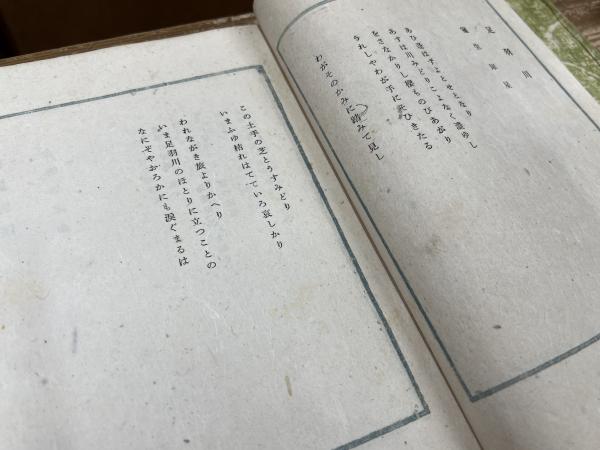 足羽川
室生犀星
あひ逢はずよとせとなり
あすは川みどりこよなく濃ゆし
をさなかりし櫻ものびあがり
うれしやわが手にそひきたる
わがそのかみに踏みて見し
この土手の芝とうすみどり
いまふゆ枯れはてていろ哀しかり
われながき旅よりかへり
いま足羽川のほとりに立つことの
なにぞやおろかにも涙ぐまるは